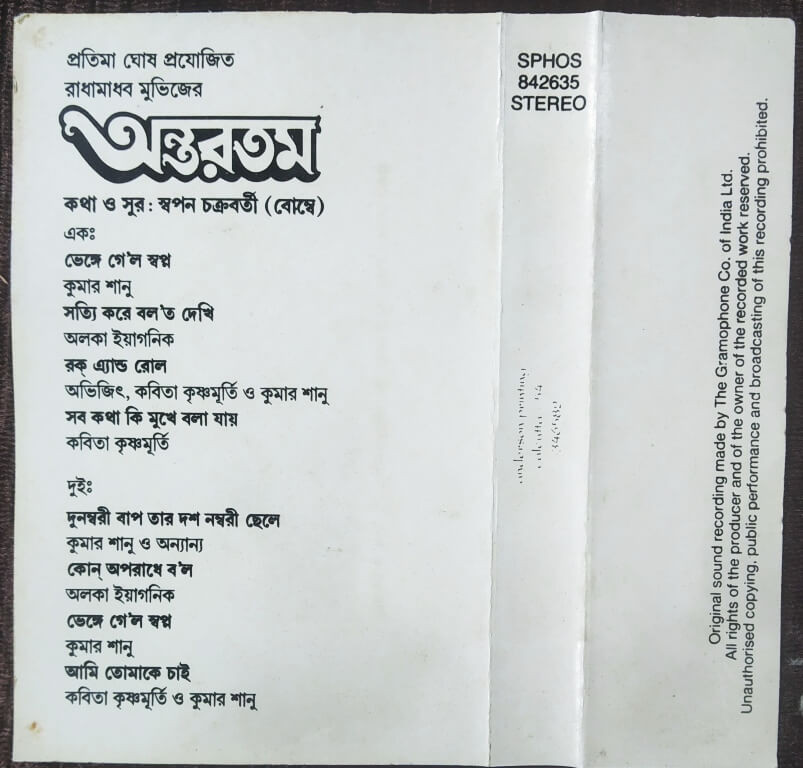 প্রতিমা ঘোষ প্রযোজিত
রাধামাধব মুভিজের
অন্তরতম
কথা ও সুর : স্বপন চক্রবর্তী (বোম্বে)
একঃ
ভেঙ্গে গে'ল স্বপ্ন
কুমার শানু
সত্যি করে বল'ত দেখি
অলকা ইয়াগনিক
রক্ এ্যান্ড রোল
অভিজিৎ, কবিতা কৃষ্ণমূর্তি ও কুমার শানু
সব কথা কি মুখে বলা যায়
কবিতা কৃষ্ণমূর্তি
দুইঃ
দুনম্বরী বাপ তার দশ নম্বরী ছেলে
কুমার শানু ও অন্যান্য
কোন্ অপরাধে ব'ল
অলকা ইয়াগনিক
ভেঙ্গে গে'ল স্বপ্ন
কুমার শানু
আমি তোমাকে চাই
কবিতা কৃষ্ণমূর্তি ও কুমার শানু
SPHOS
842635
STEREO
anderson printing
calcutta
Original sound recording made by The Gramophone Co. of India Ltd.
All rights of the producer and of the owner of the recorded work reserved.
Unauthorised copying, public performance and broadcasting of this recording prohibited.